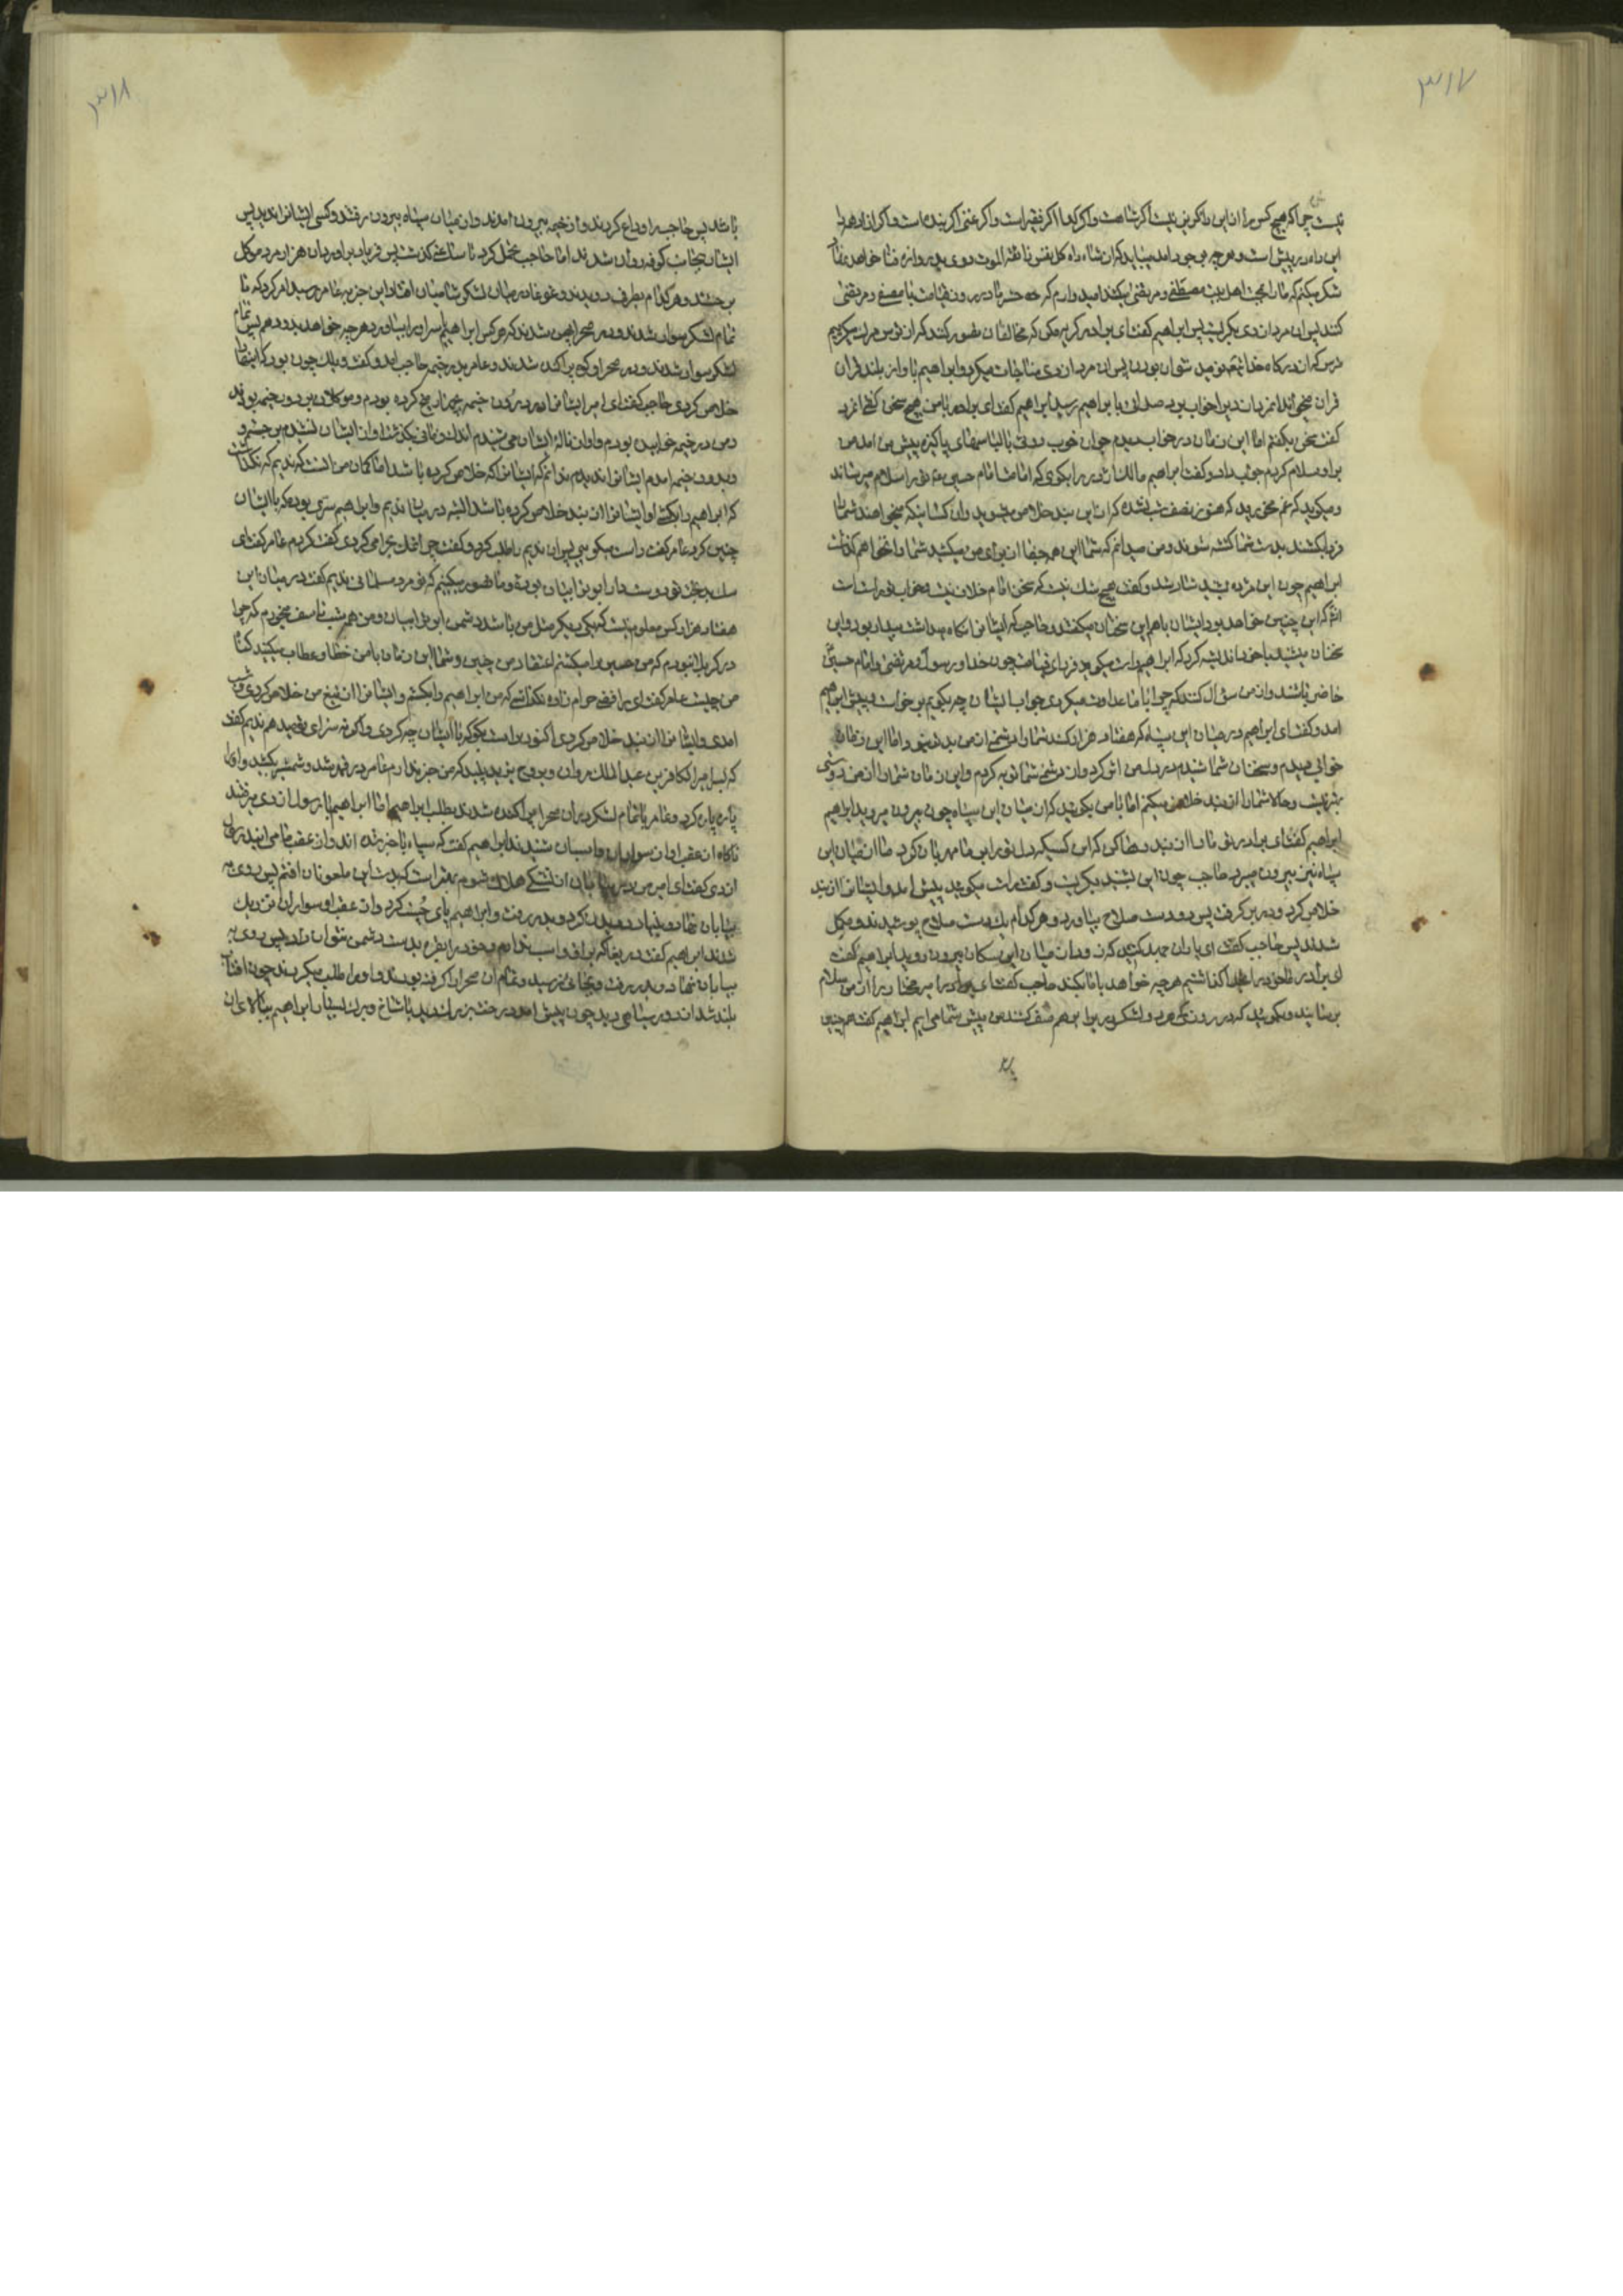 ۳۱۷
نیست چرا که هیچ کس را از این راه گریز نیست اگر شاهست و اگر گدا اگر فقیر است و اگر غنی اگر بنده است و اگر ازاد همه را
این راه در پیش است و هر چه بوجود امد میباید که از شاه راه کل نفس ذائقة الموت روی بدروازه فنا خواهد
شکر میکنم که ما را بمحبت اهل بیت مصطفی و مرتضی میکشند امیدوارم که حشر ما در روز قیامت با مصطفی و مرتضی
کنند پس ان مرد ازدی بگریست پس ابراهیم گفت ای برادر گریه مکن که مخالفان تصور کنند که از ترس مرگ میگریم
پس ان مرد ازدی مناجات میکرد و ابراهیم باواز بلند قران
قران میخواند
گفت سخن نگفتم اما این زمان در خواب دیدم جوان خوب روئی با لباسهای پاکیزه پیش من امد من
بر او سلام کردم جواب داد و گفت ابراهیم مالک اژدر را بگوی که امامت امام حسین ترا سلام میرساند
و میگوید که غم مخورید که هنوز نصف شب نشده که از این بند خلاص میشوید و ان کسانیکه میخواهند شما را
فردا بکشند بدست شما کشته شوند و من میدانم که شما این همه جفا از برای من میکشید شما را نخواهم گذاشت
ابراهیم چون این مژده بشنید شاد شد و گفت هیچ شک نیست که سخن امام خلاف نیست و خواب تو راست است
که این چنین خواهد بود ایشان باهم این سخنان میگفتند و حاجب که ایشانرا نگاه میداشت بیدار بود و این
سخنان میشنید با خود اندیشه کرد که ابراهیم راست میگوید فردای قیامت چون خدا و رسول و مرتضی و امام حسین
حاضر باشند و از من سؤال کنند که چرا با ما عداوت میکردی جواب ایشان چه بگویم برخواست و پیش ابراهیم
امد و گفت ای ابراهیم در میان این سپاه که هفتاد هزار کسند شما را دشمن تر از من نبود و اما این زمان
خوابی دیدم و سخنان شما شنیدم در دل من اثر کرد و از دشمنی شما توبه کردم و این زمان شما را از من دوستی
بهتر نیست و حالا شما را از بند خلاص میکنم اما با من بگوئید که از میان این سپاه چون بیرون میروید ابراهیم
ابراهیم گفت ای برادر تو ما را از بند رها کن که این کسیکه دل تو را با ما مهربان کرد ما را از میان این
سپاه نیز بیرون میبرد حاجب چون این بشنید بگریست و گفت راست میگوئید پیش امد و ایشانرا از بند
خلاص کرد و در بر گرفت پس دو دست صلاح بیاورد و هر کدام یک دست صلاح پوشیدند و مکمل
شدند پس حاجب گفت ای یاران جهد کنید که زود از میان این سگان بیرون روید ابراهیم گفت
ای برادر ما خود را بخدا گذاشتیم هر چه خواهد با ما بکند حاجب گفت ای برادر امیر مختار را از من سلام
برسانید و بگوئید که در روزیکه هر دو لشکر در برابر هم صف کشند من پیش شما می ایم ابراهیم گفت همچنین
۳۱۸
باشد پس حاجب را وداع کردند و از خیمه بیرون امدند و از میان سپاه بیرون رفتند و کسی ایشانرا ندید پس
ایشان بجانب کوفه روان شدند اما حاجب تحمل کرد تا ساعتی گذشت پس فریاد براورد ان هزار مرد موکل
برجستند و هر کدام بطرفی دویدند و غوغا در میان لشکر شامیان افتاد این خبر به عامر رسید امر کرد که تا
تمام لشکر سوار شدند و در صحرا پهن شدند که هر کس ابراهیم اسرا را بیاورد هر چه خواهد بدو دهم پس تمام
لشکر سوار شدند و در صحرا و کوه پراکنده شدند و عامر بدر خیمه حاجب امد و گفت ویلک چون بود که اینها را
خلاص کردی حاجب گفت ای امیر ایشانرا در درون خیمه چهار میخ کرده بودم و موکلان بر در خیمه بودند
و من در خیمه خوابیده بودم و اواز ناله ایشان می شنیدم اندک زمانی بگذشت اواز ایشان نشنیدم برجستم و
و بدرون خیمه امدم ایشانرا ندیدم ندانم که ایشانرا که خلاص کرده باشد اما گمان من انست که ندیم که نگذاشت
که ابراهیم را بکشی او ایشانرا از بند خلاص کرده باشد البته در میان ندیم و ابراهیم سری بود که با ایشان
چنین کرد عامر گفت راست میگویی پس ان ندیم را طلب کرد و گفت چرا نمک بحرامی کردی گفت نکردم عامر گفت ای
سگ بدبخت تو دوستدار ابو ترابیان بوده و ما تصور میکنیم که تو مرد مسلمانی ندیم گفت در میان این
هفتاد هزار کس معلوم نیست که یکی دیگر مثل من باشد دشمن ابو ترابیان و من همه شب تاسف میخورم که چرا
در کربلا نبودم که من حسین را میکشتم اعتقاد من چنین و شما این زمان با من خطاب و عتاب میکنید گناه
من چیست عامر گفت ای رافضی حرام زاده نگذاشتی که من ابراهیم را بکشم و ایشانرا از تیغ من خلاص کردی و شب
امدی و ایشانرا از بند خلاص کردی اکنون راست بگو که با ایشان چه کردی و اگر نه سزای تو بدهم ندیم گفت
که بسر امیر الکافرین عبد الملک مروان و بروح یزید پلید که من خبر ندارم عامر در قهر شد و شمشیر بکشید و او را
پاره پاره کرد و عامر با تمام لشکر در ان صحرا پراکنده شدند بطلب ابراهیم اما ابراهیم با رسول ازدی میرفتند
ناگاه از عقب اواز سواران و اسبان شنیدند ابراهیم گفت که سپاه با خبر شده اند و از عقب ما می ایند
ازدی گفت ای امیر من در بیابان از تشنگی هلاک شوم بهتر است که بدست این ملعونان افتم پس روی به
بیابان نهاد و بنیاد دویدن کرد و بدر رفت و ابراهیم پای چست کرد و از عقب او سواران نزدیک
شدند ابراهیم گفت دریغا که یراق و اسب ندارم و خود را بطرح بدست دشمن نتوان داد پس روی به
بیابان نهاد و بدر رفت و بجائی نرسید و تمام ان صحرا را گرفته بودند و او را طلب میکردند چون افتاب
بلند شد از دور سیاهی دید چون پیش امد درخت بزرگ دید با شاخ و برگ بسیار ابراهیم ببالای ان